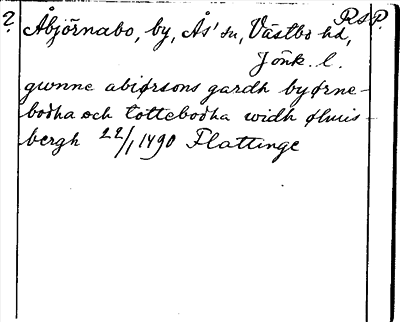 ? Åbjörnabo, by, Ås' sn, Västbo hd, RSP.
Jönk. l.
gwnne abiørsons gardh byørne-
bodha och tottebodha widh ølmis-
bergh 22/1 1490 Flattinge